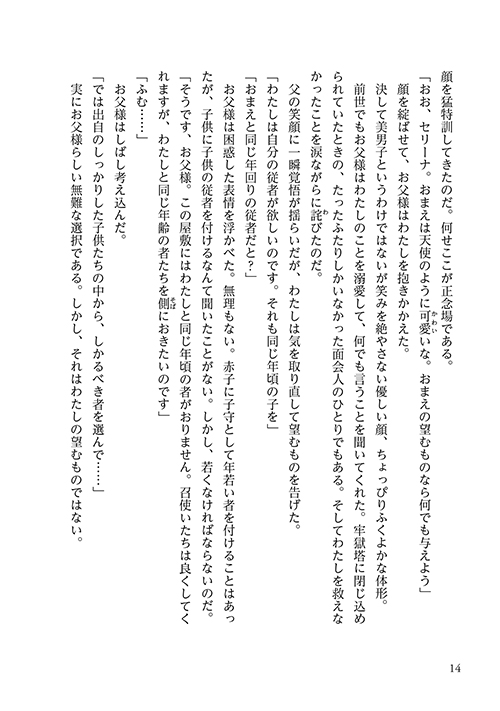 顔を猛特訓してきたのだ。何せここが正念場である。
「おお、セリーナ。おまえは天使のように可愛いな。おまえの望むものなら何でも与えよう」
顔を綻ばせて、お父様はわたしを抱きかかえた。
決して美男子というわけではないが笑みを絶やさない優しい顔、ちょっぴりふくよかな体形。
前世でもお父様はわたしのことを溺愛して、何でも言うことを聞いてくれた。牢獄塔に閉じ込め
られていたときの、たったふたりしかいなかった面会人のひとりでもある。そしてわたしを救えな
かったことを涙ながらに詫びたのだ。
父の笑顔に一瞬覚悟が揺らいだが、わたしは気を取り直して望むものを告げた。
「わたしは自分の従者が欲しいのです。それも同じ年頃の子を」
「おまえと同じ年回りの従者だと?」
お父様は困惑した表情を浮かべた。無理もない。赤子に子守として年若い者を付けることはあっ
たが、子供に子供の従者を付けるなんて聞いたことがない。しかし、若くなければならないのだ。
「そうです、お父様。この屋敷にはわたしと同じ年頃の者がおりません。召使いたちは良くしてく
れますが、わたしと同じ年齢の者たちを側におきたいのです」
「ふむ……」
お父様はしばし考え込んだ。
「では出自のしっかりした子供たちの中から、しかるべき者を選んで……」
実にお父様らしい無難な選択である。しかし、それはわたしの望むものではない。
14